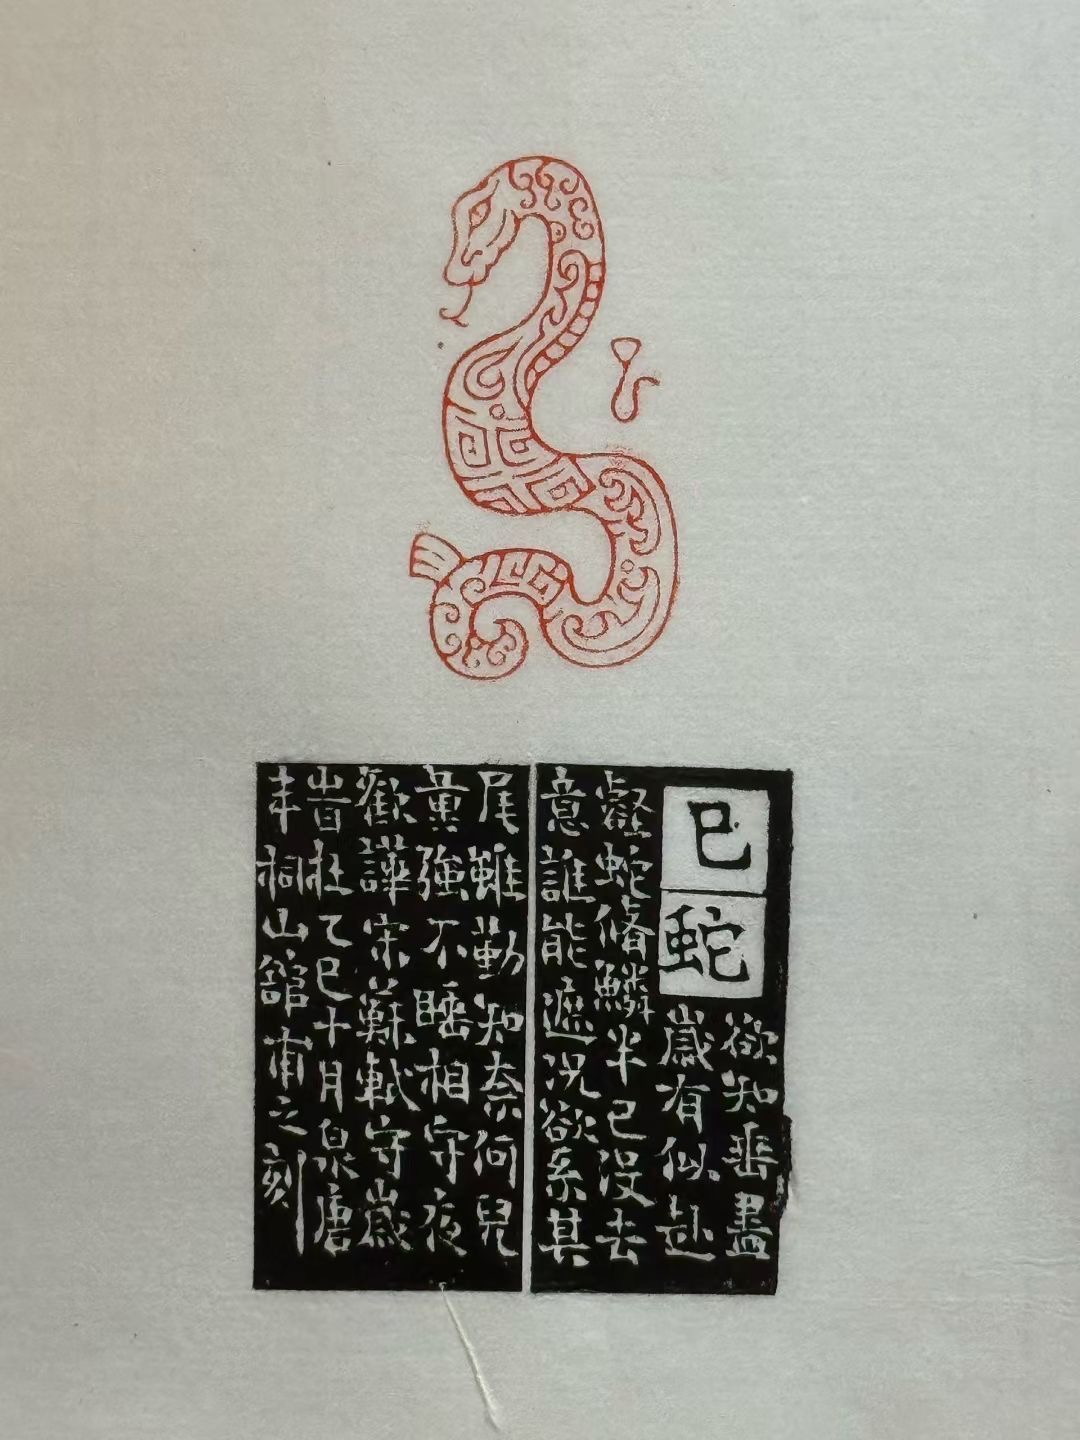 巳
蛇
欲知垂盡
歲有似赴
壑蛇脩鱗半已沒去
意誰能遮況欲系其
尾雖勤知奈何兒
童強不睡相守夜
歡譁宋蘇軾守歲
旹在乙巳十月泉唐
山館甫之刻